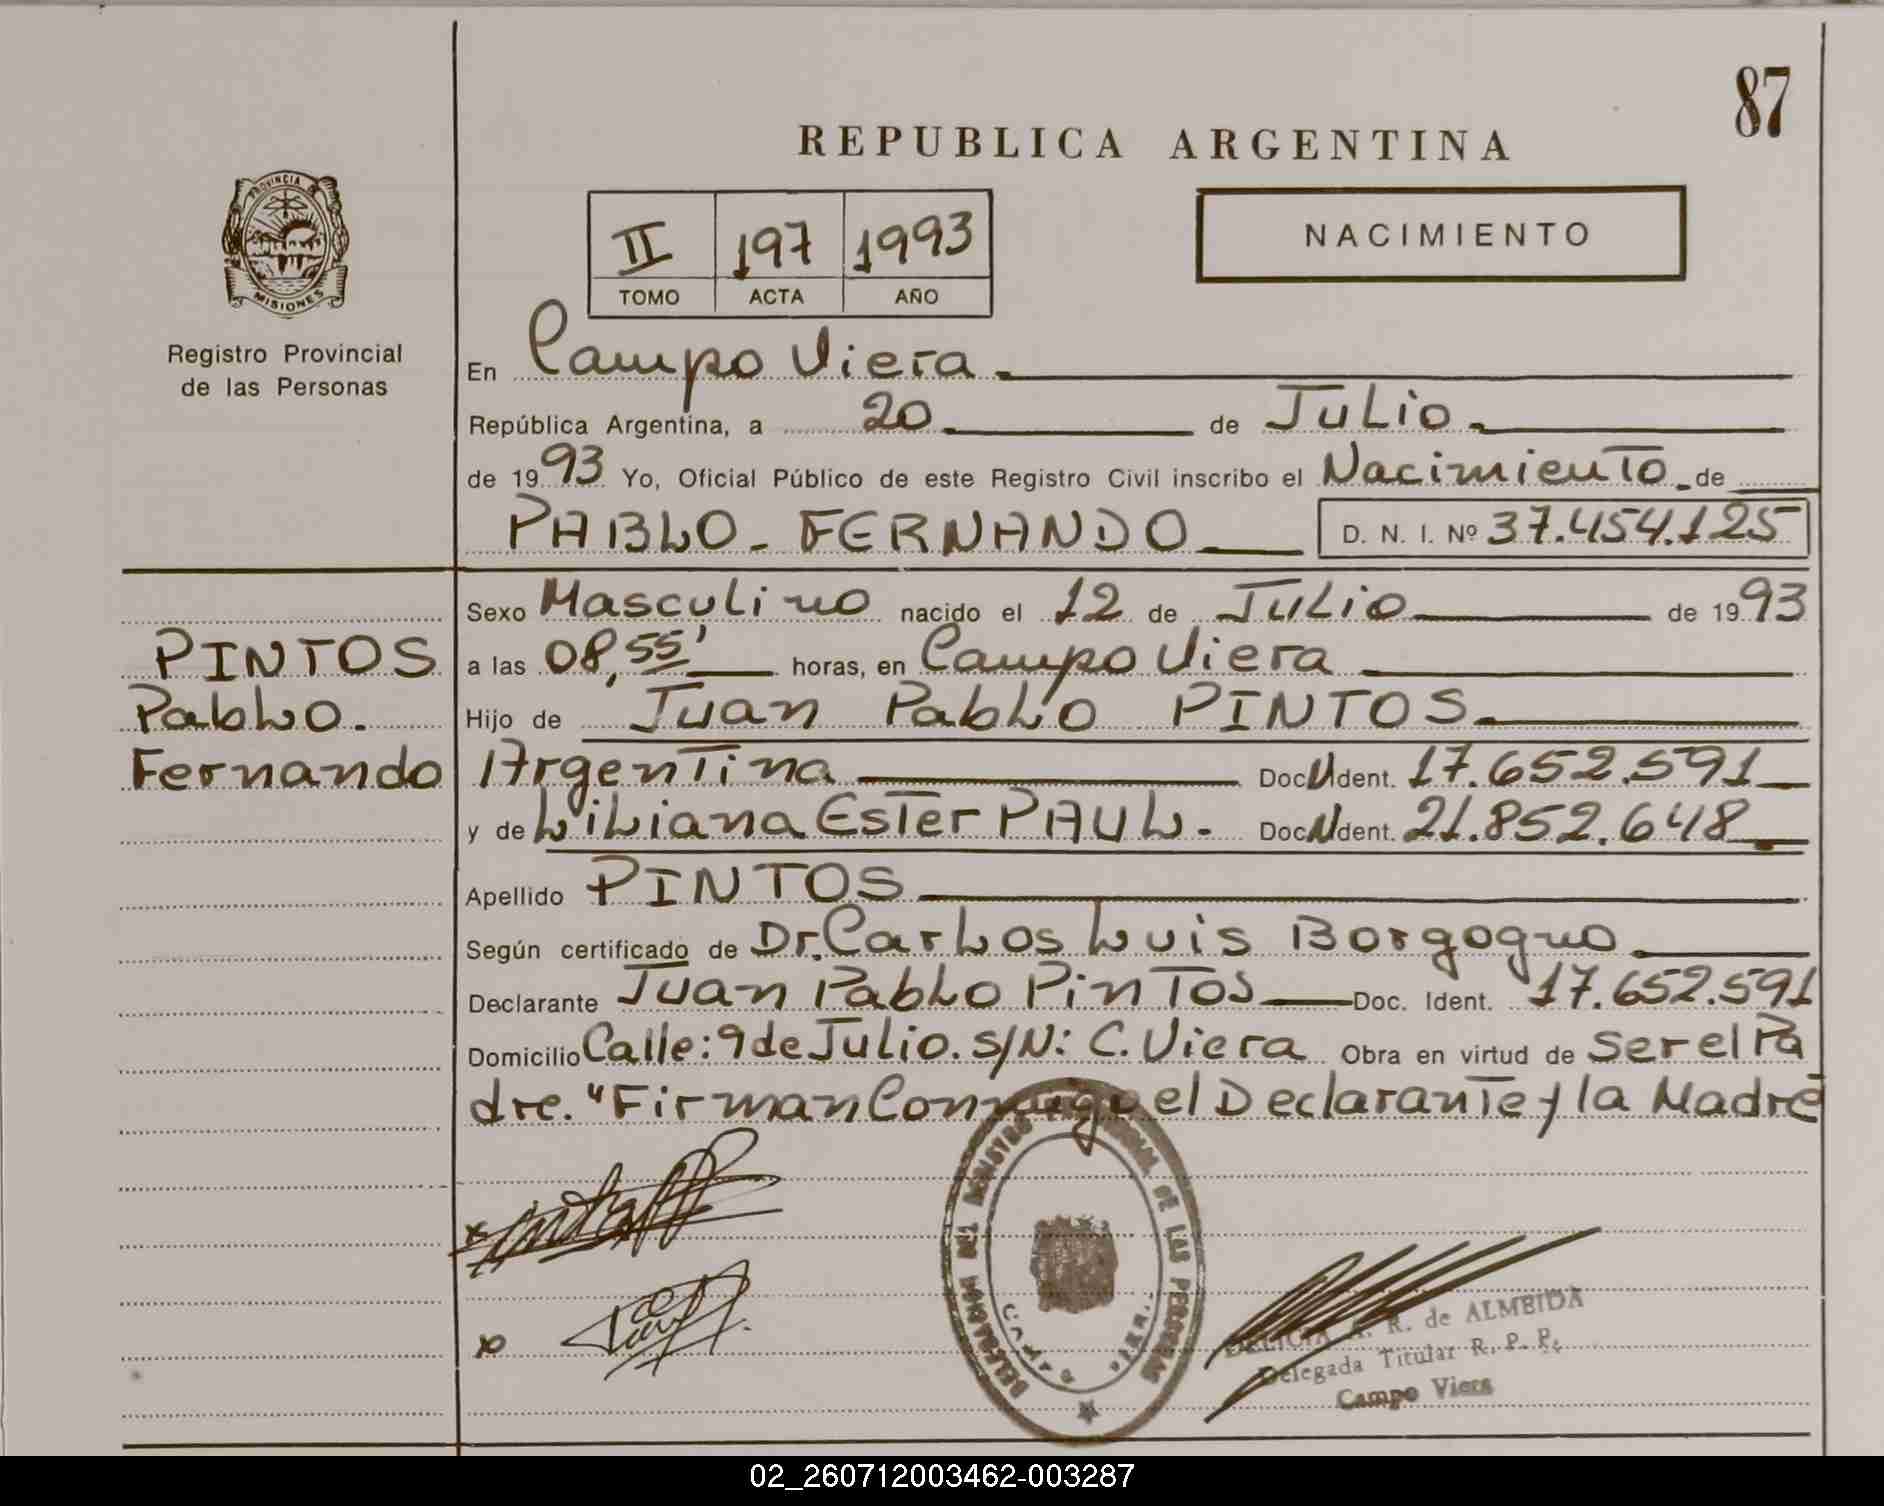 87
REPUBLICA ARGENTINA
PROVINCIA DE
MISIONES
Registro Provincial
de las Personas
II 197 1993
TOMO ACTA AÑO
NACIMIENTO
En Campo Viera.
República Argentina, a 20 de Julio.
de 1993 Yo, Oficial Público de este Registro Civil inscribo el Nacimiento de
PABLO - FERNANDO D. N. I. Nº 37.454.125
PINTOS
Pablo.
Fernando
Sexo Masculino nacido el 12 de Julio de 1993
a las 08,55' horas, en Campo Viera
Hijo de Juan Pablo PINTOS.
Argentina Doc. Ident. 17.652.591
y de Liliana Ester PAUL. Doc. Ident. 21.852.648
Apellido PINTOS
Según certificado de Dr. Carlos Luis Borgogno.
Declarante Juan Pablo Pintos Doc. Ident. 17.652.591
Domicilio Calle: 9 de Julio. S/N: C. Viera Obra en virtud de ser el Pa
dre. "Firman Conmigo el Declarante y la Madre
DELEGACION DEL REGISTRO PROVINCIAL DE LAS PERSONAS
CAMPO VIERA
DELICIA A. R. de ALMEIDA
Delegada Titular R. P. P.
Campo Viera
02_260712003462-003287